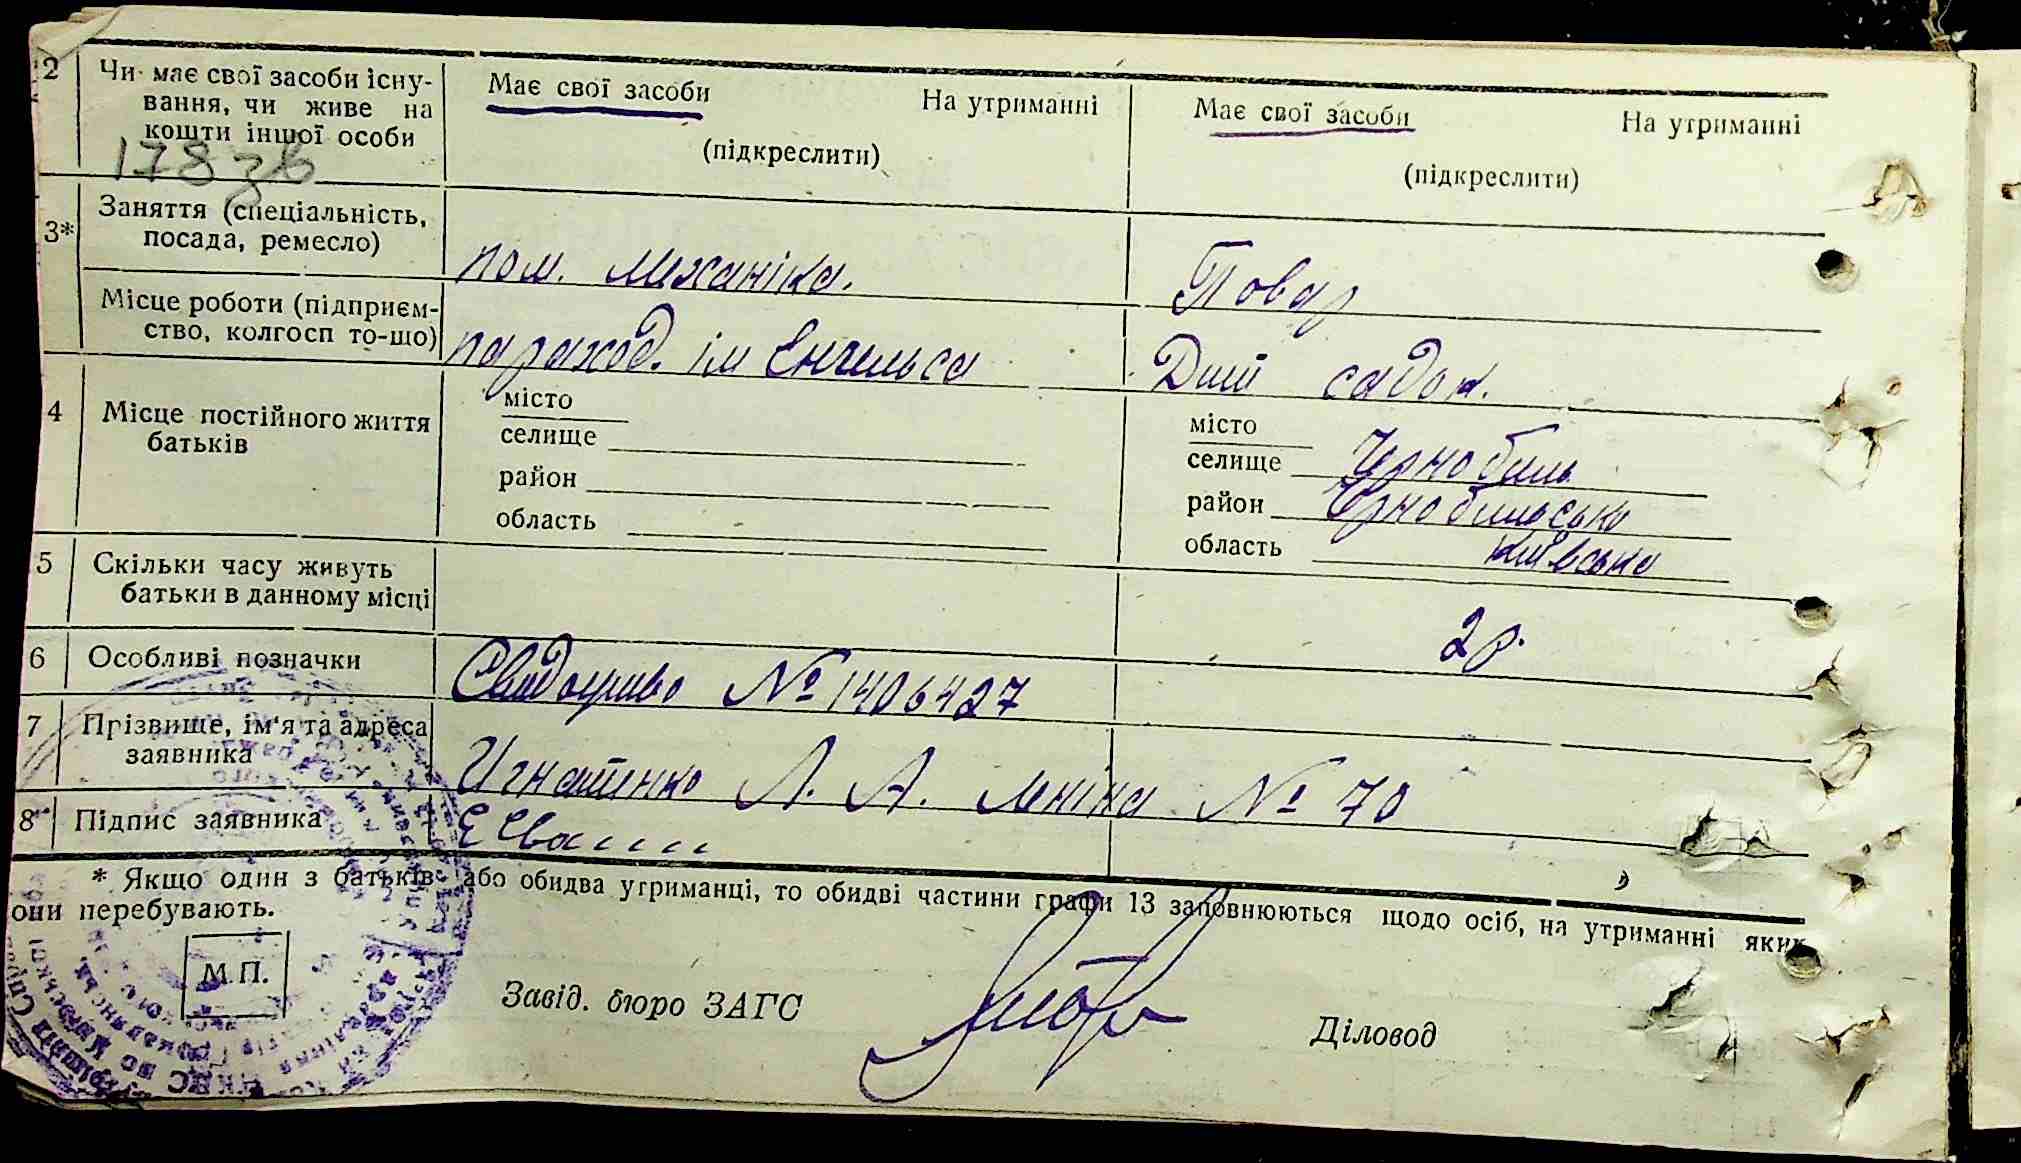 2 Чи має свої засоби існу-
вання, чи живе на
кошти іншої особи
Має свої засоби На утриманні
(підкреслити)
Має свої засоби На утриманні
(підкреслити)
178 зв
3* Заняття (спеціальність,
посада, ремесло)
пом. механіка.
Повар
Місце роботи (підприєм-
ство, колгосп то-що)
параход. ім Енгельса
Дит садок.
4 Місце постійного життя
батьків
місто
селище
район
область
місто
селище Чернобиль
район Чернобильсько
область Київська
5 Скільки часу живуть
батьки в данному місці
2 р.
6 Особливі позначки
Свідоцтво № 1406427
7 Прізвище, ім'я та адреса
заявника
Игнатенко Л. А. Леніна № 70
8 Підпис заявника
* Якщо один з батьків або обидва утриманці, то обидві частини графи 13 заповнюються щодо осіб, на утриманні яких
они перебувають.
М.П.
Завід. бюро ЗАГС
Діловод